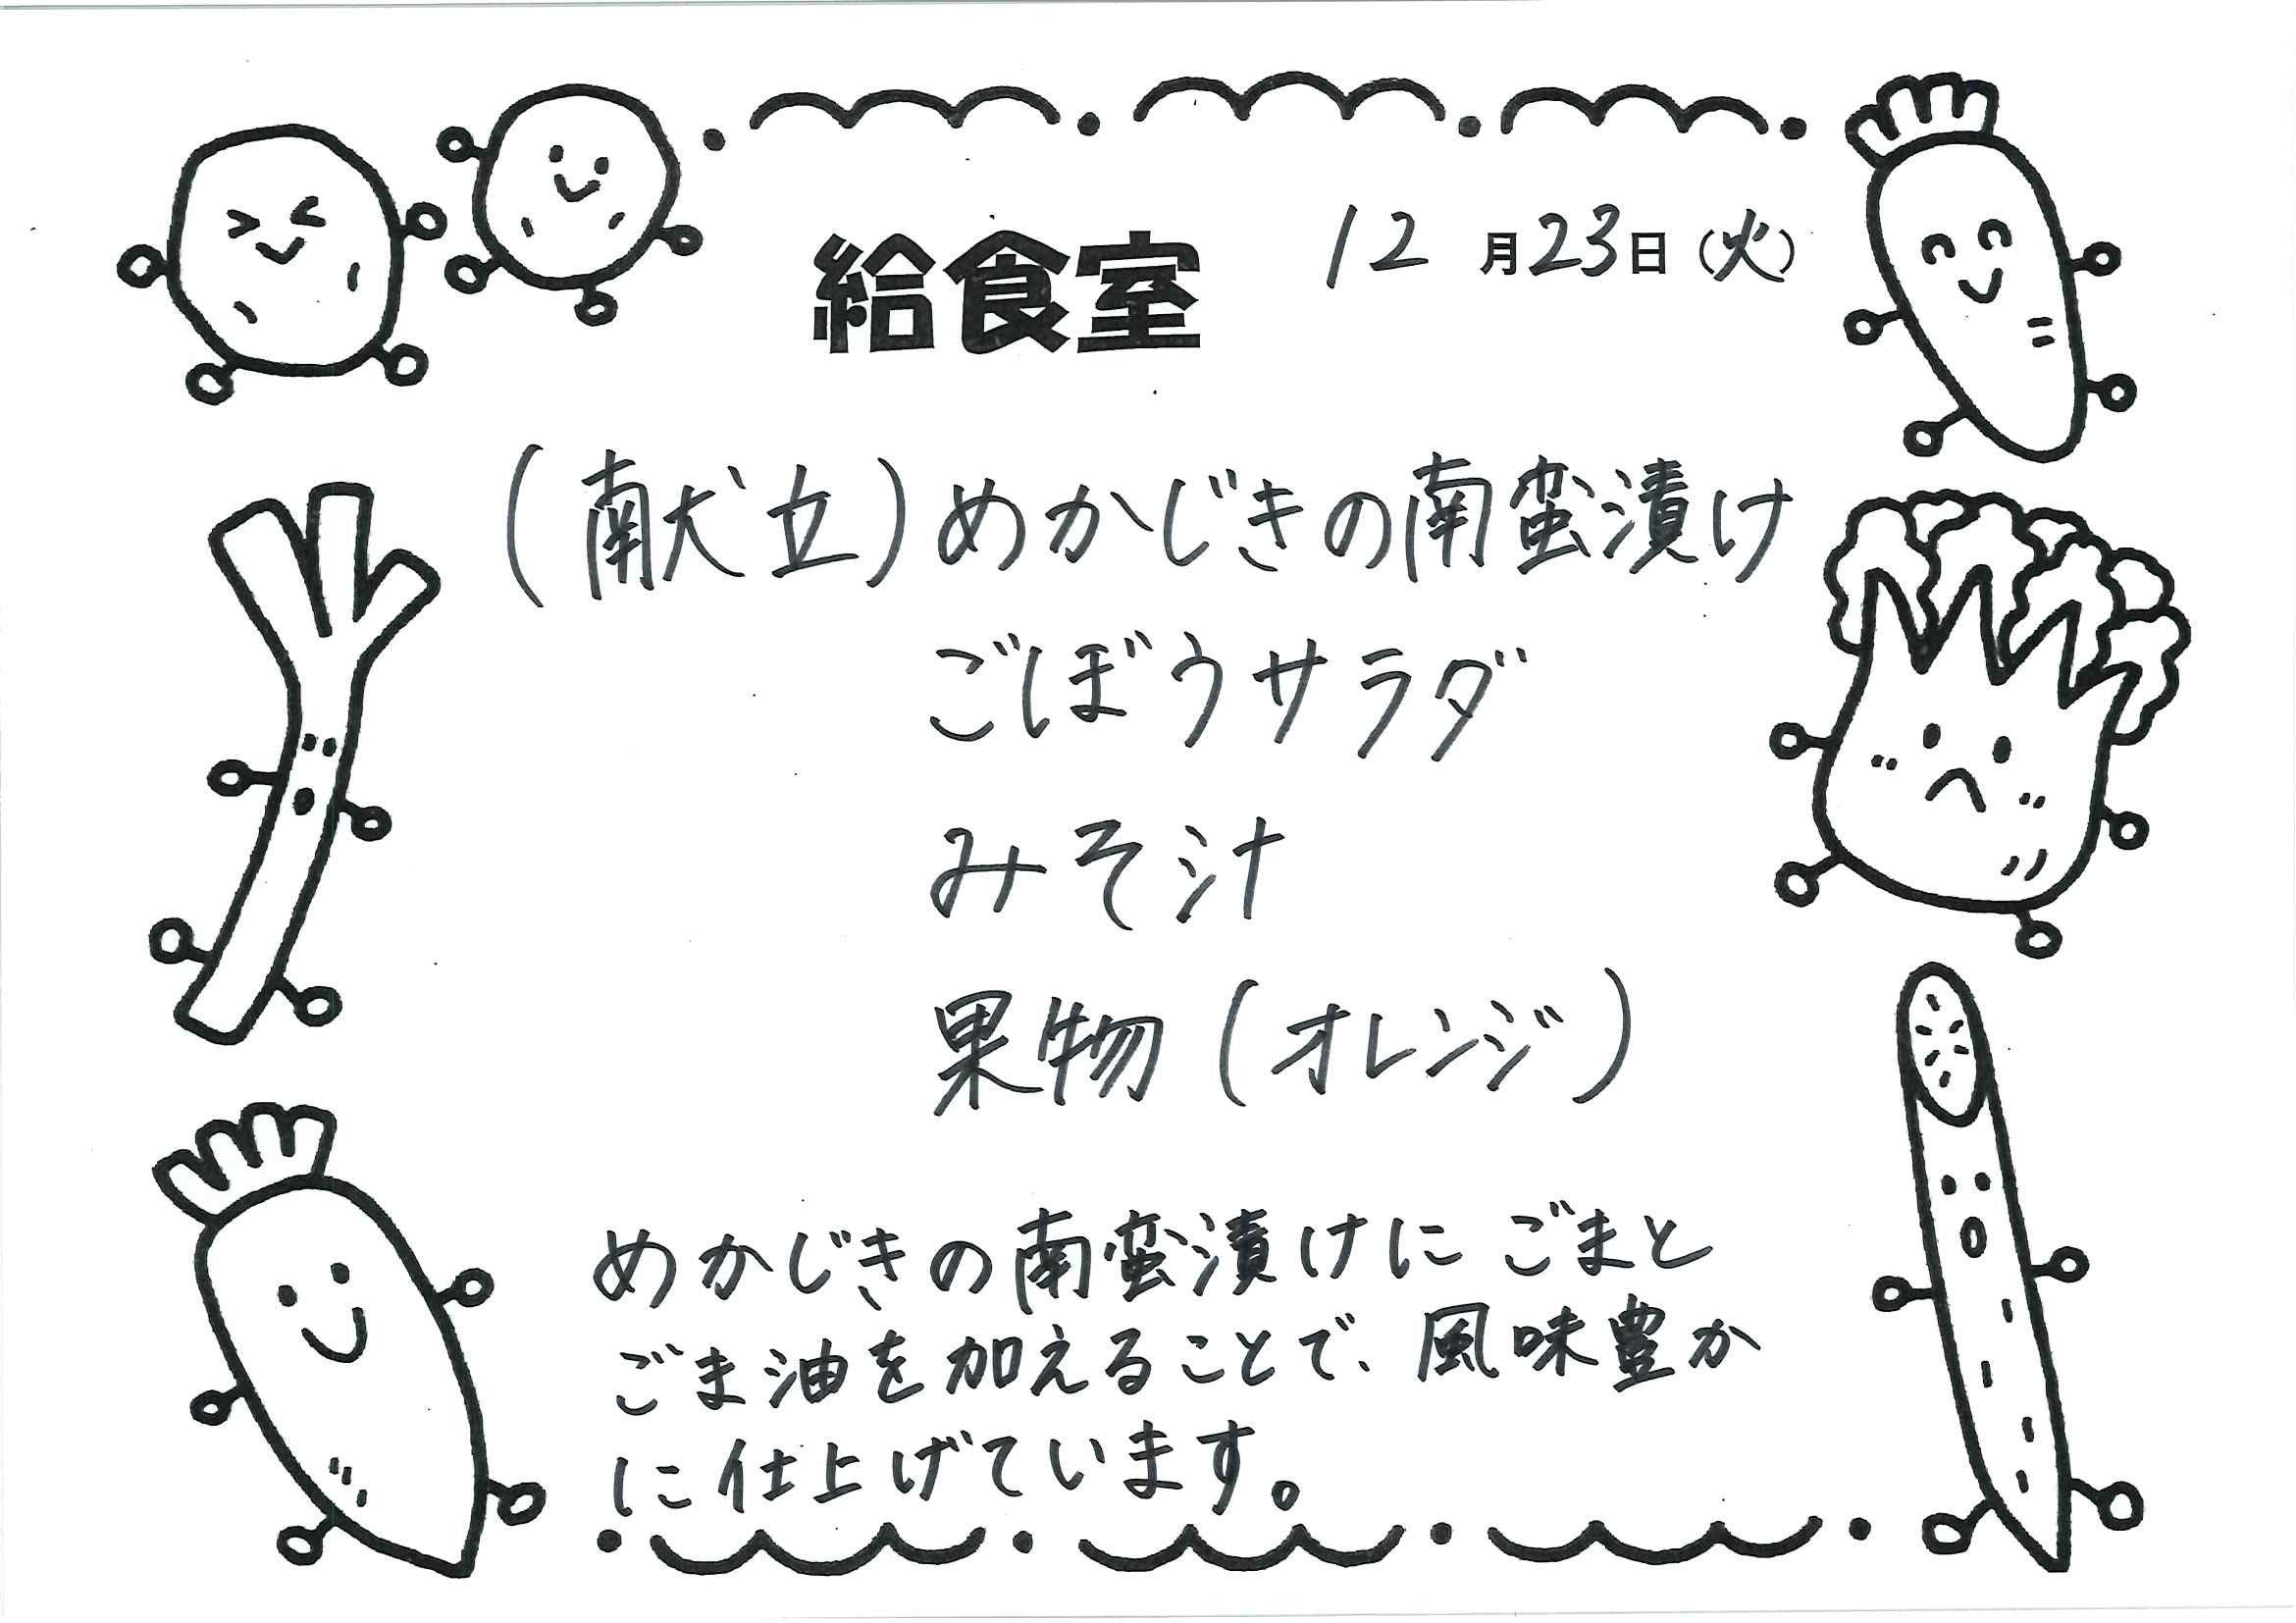 給食室
12月23日(火)
(献立)めかじきの南蛮漬け
ごぼうサラダ
みそ汁
果物(オレンジ)
めかじきの南蛮漬けにごまと
ごま油を加えることで、風味豊か
に仕上げています。